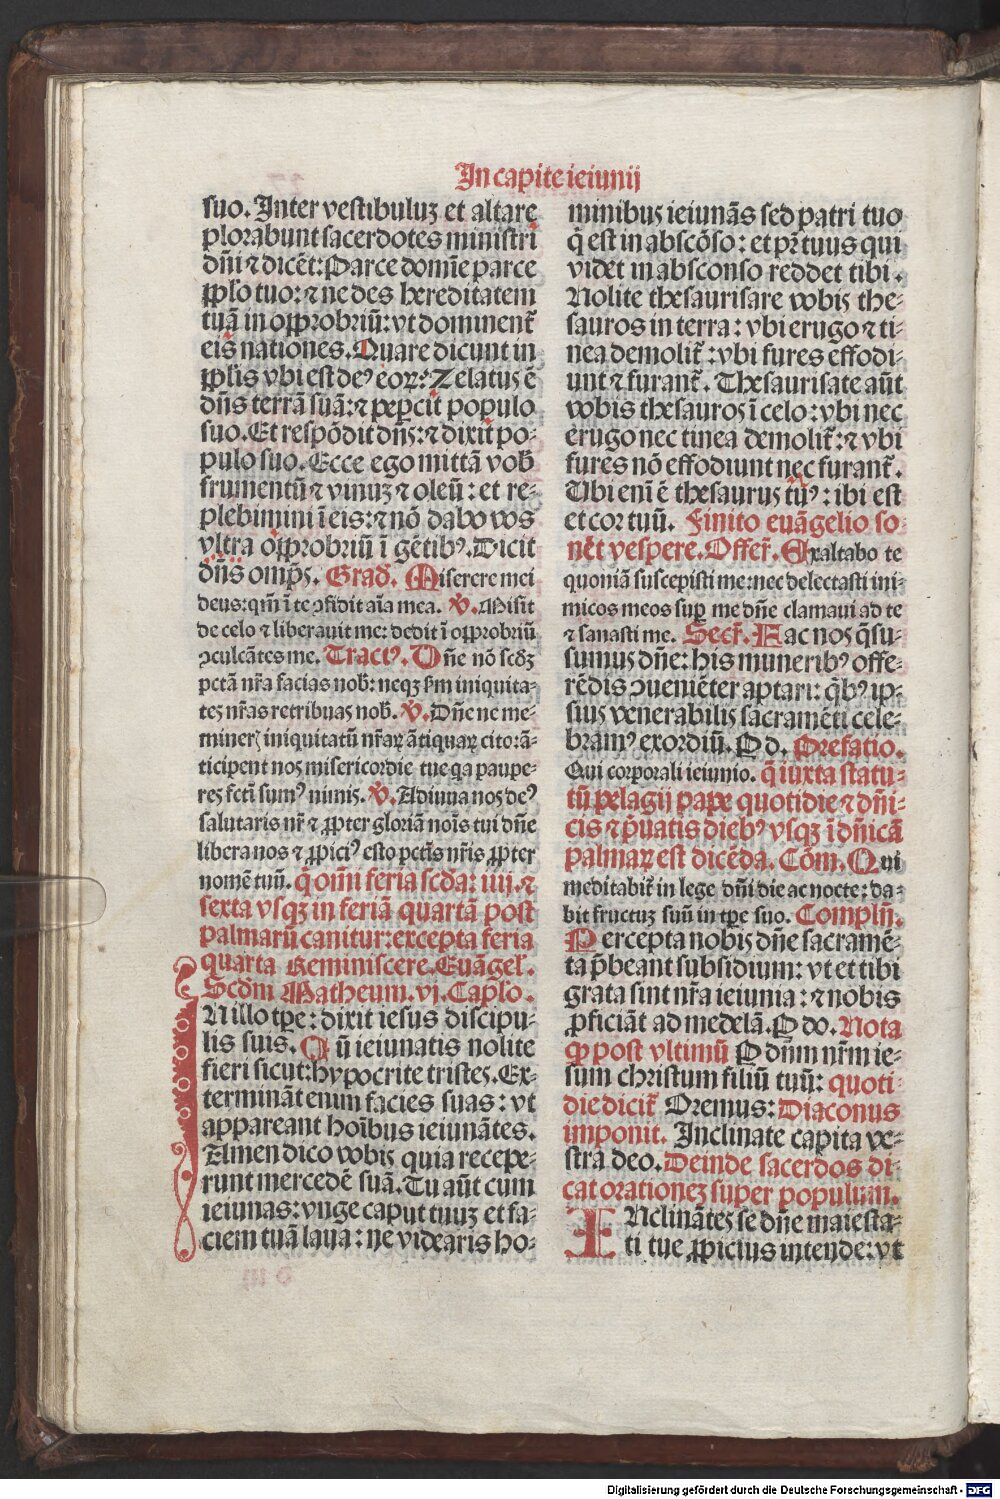 In capite ieiunij
suo. Inter vestibuluꝫ et altare
plorabunt sacerdotes ministri
dñi ⁊ dicẽt: Parce domĩe parce
ꝓplo tuo: ⁊ ne des hereditatem
tuã in oꝓprobriũ: vt dominent᷑
eis nationes. Quare dicunt in
ꝓplis vbi est deꝰ eoꝝ: Zelatus ẽ
dñs terrã suã: ⁊ peꝑcit populo
suo. Et respõdit dñs: ⁊ dixit po⸗
pulo suo. Ecce ego mittã vob̃
frumentũ ⁊ vinuꝫ ⁊ oleũ: et re⸗
plebimini ĩ eis: ⁊ nõ dabo vos
vltra oꝓprobriũ ĩ gẽtibꝰ. Dicit
dñs omp̃s. Grad̃. Miserere mei
deus: qm̃ ĩ te ꝯfidit aĩa mea. ℣. Misit
de celo ⁊ liberauit me: dedit ĩ oꝓprobriũ
ꝯculcãtes me. Tractꝰ. Dñe nõ scd̃ꝫ
pctã nr̃a facias nob̃: neqꝫ ẜm iniquita⸗
tes nr̃as retribuas nob̃. ℣. Dñe ne me⸗
miner̃ iniquitatũ nr̃aꝝ ãtiquaꝝ cito: ã⸗
ticipent nos misericordie tue qa paupe⸗
res fcti sumꝰ nimis. ℣. Adiuua nos deꝰ
salutaris nr̃ ⁊ ꝓpter gloriã noĩs tui dñe
libera nos ⁊ ꝓpiciꝰ esto pctĩs nr̃is ꝓpter
nomẽ tuũ. q̃ om̃i feria scd̃a: iiij. ⁊
sexta vsqꝫ in feriã quartã post
palmarũ canitur: excepta feria
quarta Reminiscere. Euãgel̃.
Scd̃m Matheum. vj. Cap̃lo.
IN illo tꝑe: dixit iesus discipu⸗
lis suis. Cũ ieiunatis nolite
fieri sicut: hypocrite tristes. Ex⸗
terminãt enim facies suas: vt
appareant hoĩbus ieiunãtes.
Amen dico vobis quia recepe⸗
runt mercedẽ suã. Tu aũt cum
ieiunas: vnge caput tuuꝫ et fa⸗
ciem tuã laua: ne videaris ho⸗
minibus ieiunãs sed patri tuo
q̃ est in abscõso: et pr̃ tuus qui
videt in absconso reddet tibi.
Nolite thesaurisare vobis the⸗
sauros in terra: vbi erugo ⁊ ti⸗
nea demolit᷑: vbi fures effodi⸗
unt ⁊ furant᷑. Thesaurisate aũt
vobis thesauros ĩ celo: vbi nec
erugo nec tinea demolit᷑: ⁊ vbi
fures nõ effodiunt nec furant᷑.
Ubi enĩ ẽ thesaurus tũꝰ: ibi est
et cor tuũ. Finito euãgelio so⸗
nẽt vespere. Offer̃. Exaltabo te
quoniã suscepisti me: nec delectasti ini⸗
micos meos suꝑ me dñe clamaui ad te
⁊ sanasti me. Secr̃. Fac nos q̃su⸗
sumus dñe: his muneribꝰ offe⸗
rẽdis ꝯueniẽter aptari: q̃bꝰ ip⸗
sius venerabilis sacramẽti cele⸗
bramꝰ exordiũ. P d. Prefatio.
Qui corporali ieiunio. q̃ iuxta statu⸗
tũ pelagij pape quotidie ⁊ dñi⸗
cis ⁊ p̃uatis diebꝰ vsqꝫ ĩ dñicã
palmaꝝ est dicẽda. Cõm. Qui
meditabit᷑ in lege dñi die ac nocte: da⸗
bit fructuꝫ suũ in tꝑe suo. Compleñ.
Percepta nobis dñe sacramẽ⸗
ta p̃beant subsidium: vt et tibi
grata sint nr̃a ieiunia: ⁊ nobis
ꝓficiãt ad medelã. P do. Nota
ꝙ post vltimũ P dñm nr̃m ie⸗
sum christum filiũ tuũ: quoti⸗
die dicit᷑ Oremus: Diaconus
imponit. Inclinate capita ve⸗
stra deo. Deinde sacerdos di⸗
cat orationeꝫ super populum.
INclinãtes se dñe maiesta⸗
ti tue ꝓpicius intende: vt
Digitalisierung gefördert durch die Deutsche Forschungsgemeinschaft - DFG